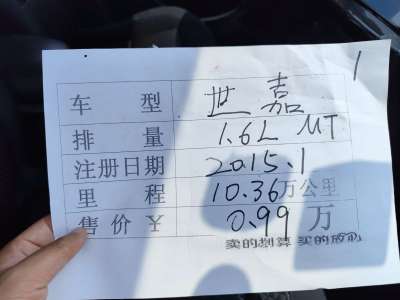 1
车型 世嘉
排量 1.6L MT
注册日期 2015.1
里程 10.36万公里
售价¥ 0.99万
卖的划算 买的放心